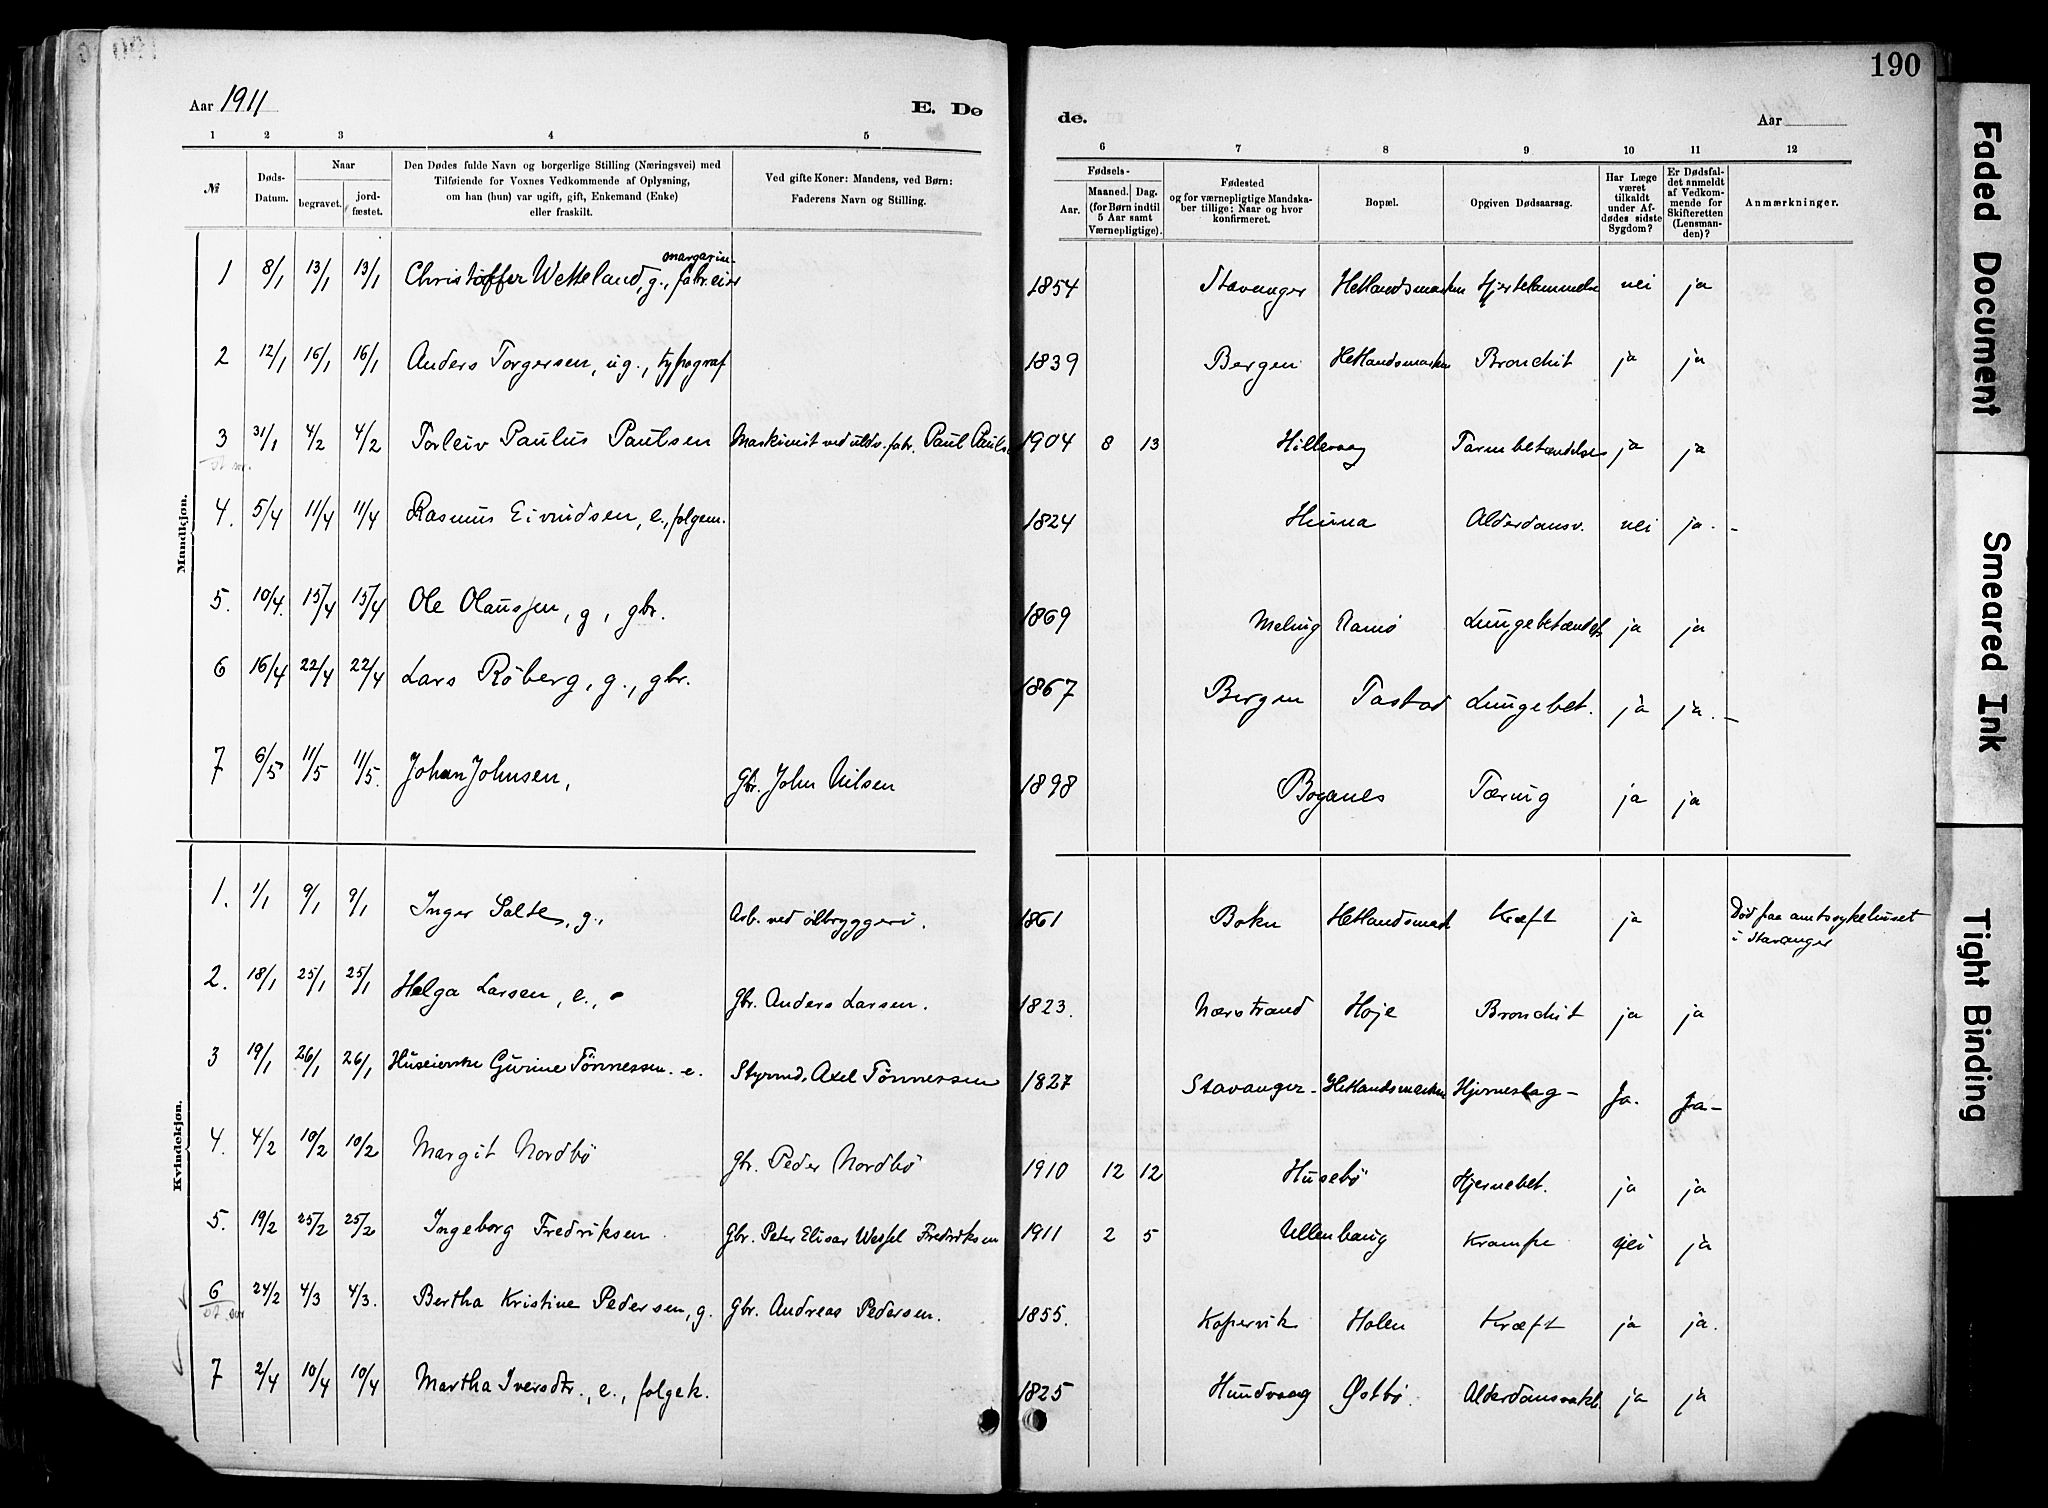 190
Aar 1911
E. Dø
de.
Aar
1 2 3 4 5 6 7 8 9 10 11 12
№
Døds-Datum.
Naar
begravet.
jord-fæstet.
Den Dødes fulde Navn og borgerlige Stilling (Næringsvei) med
Tilføiende for Voxnes Vedkommende af Oplysning,
om han (hun) var ugift, gift, Enkemand (Enke)
eller fraskilt.
Ved gifte Koner: Mandens, ved Børn:
Faderens Navn og Stilling.
Fødsels-
Aar.
Maaned. Dag.
(for Børn indtil
5 Aar samt
Værnepligtige).
Fødested
og for værnepligtige Mandska-
ber tillige: Naar og hvor
konfirmeret.
Bopæl.
Opgiven Dødsaarsag.
Har Læge
været
tilkaldt
under Af-
dødes sidste
Sygdom?
Er Dødsfal-
det anmeldt
af Vedkom-
mende for
Skifteretten
(Lensman-
den)?
Anmærkninger.
Mandkjøn.
1 8/1 13/1 13/1 Christoffer Wetteland, g., margarin-fabr.eier 1854 Stavanger Hetlandsmarken Hjertelammelse nei ja
2 12/1 16/1 16/1 Anders Torgersen, ug., typograf 1839 Bergen Hetlandsmarken Bronchit ja ja
3 31/1 4/2 4/2 Torleiv Paulus Paulsen Maskinist ved uldv. fabr. Paul Pauls 1904 8 13 Hillevaag Tarmbetændelse ja ja
4. 5/4 11/4 11/4 Rasmus Eivindsen, e., følgem. 1824 Hinna Alderdomsv. nei ja. -
5. 10/4. 15/4 15/4 Ole Olaussen, g, gbr. 1869 Meling Ramsø Lungebetændels ja ja
6 16/4 22/4 22/4 Lars Röberg, g., gbr. 1867 Bergen Tastad Lungebet. ja ja. -
7 6/5 11/5 11/5. Johan Johnsen, Gbr. John Nilsen 1898 Boganes Tæring ja ja
Kvindekjøn.
1. 1/1 9/1 9/1 Inger Salte, g., Arb. ved ölbryggeri. 1861 Bokn Hetlandsmark Kræft ja Död paa amtssykehuset
i Stavanger
2. 18/1 25/1 25/1 Helga Larsen, e., Gbr. Anders Larsen. 1823. Nærstrand Höje Bronchit ja ja
3 19/1 26/1 26/1 Huseierske Gurine Tönnessen. e. Styrmd. Axel Tönnessen 1827 Stavanger - Hetlandsmarken Hjerneslag - Ja. Ja -
4. 4/2 10/2 10/2 Margit Nordbö Gbr. Peder Nordbö 1910 12 12 Husebö Hjernebet. ja ja
5. 19/2 25/2 25/2 Ingeborg Fredriksen Gbr. Peter Elisar Wessel Fredriksen 1911 2 5 Ullenhaug Krampe nei ja
6 24/2 4/3 4/3. Bertha Kristine Pedersen, g. Gbr. Andreas Pedersen. 1855. Kopervik Holen Kræft ja ja.
7 2/4 10/4 10/4 Martha Iversdtr., e., følgek. 1825 Hundvaag Østbö. Alderdomsvakh ja ja
Faded Document
Smeared Ink
Tight Binding